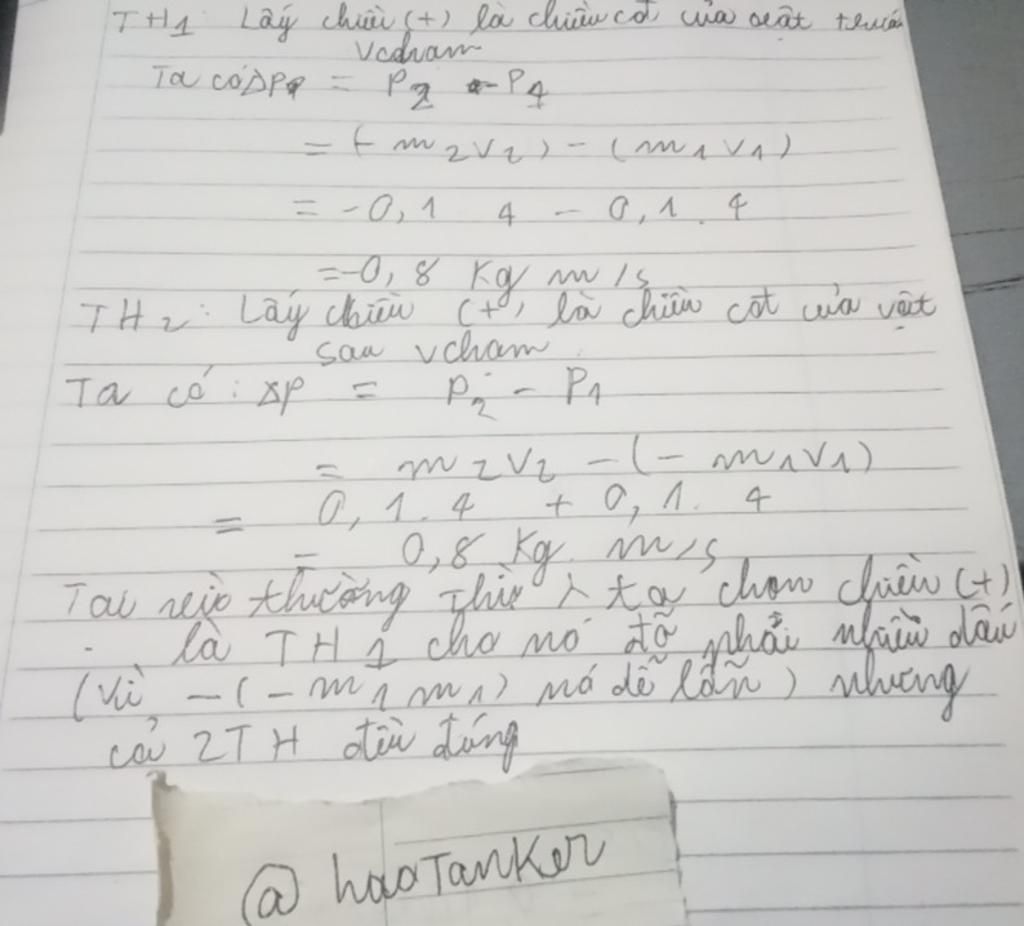 TH1: Lấy chiều (+) là chiều cđ của vật trước
vcham
Ta có ΔP = P2 - P1
= (- m2v2) - (m1v1)
= -0,1 4 - 0,1. 4
= -0,8 Kg m/s
TH2: Lấy chiều (+) là chiều cđ của vật
sau vcham
Ta có: ΔP = P2 - P1
= m2v2 - (- m1v1)
= 0,1. 4 + 0,1. 4
= 0,8 Kg. m/s
thường thì ta chọn chiều (+)
là TH1 cho nó đỡ phải nhiều dấu
(vì -(-m1m1) nó dễ lẫn) nhưng
cả 2TH đều đúng
@haoTanKer